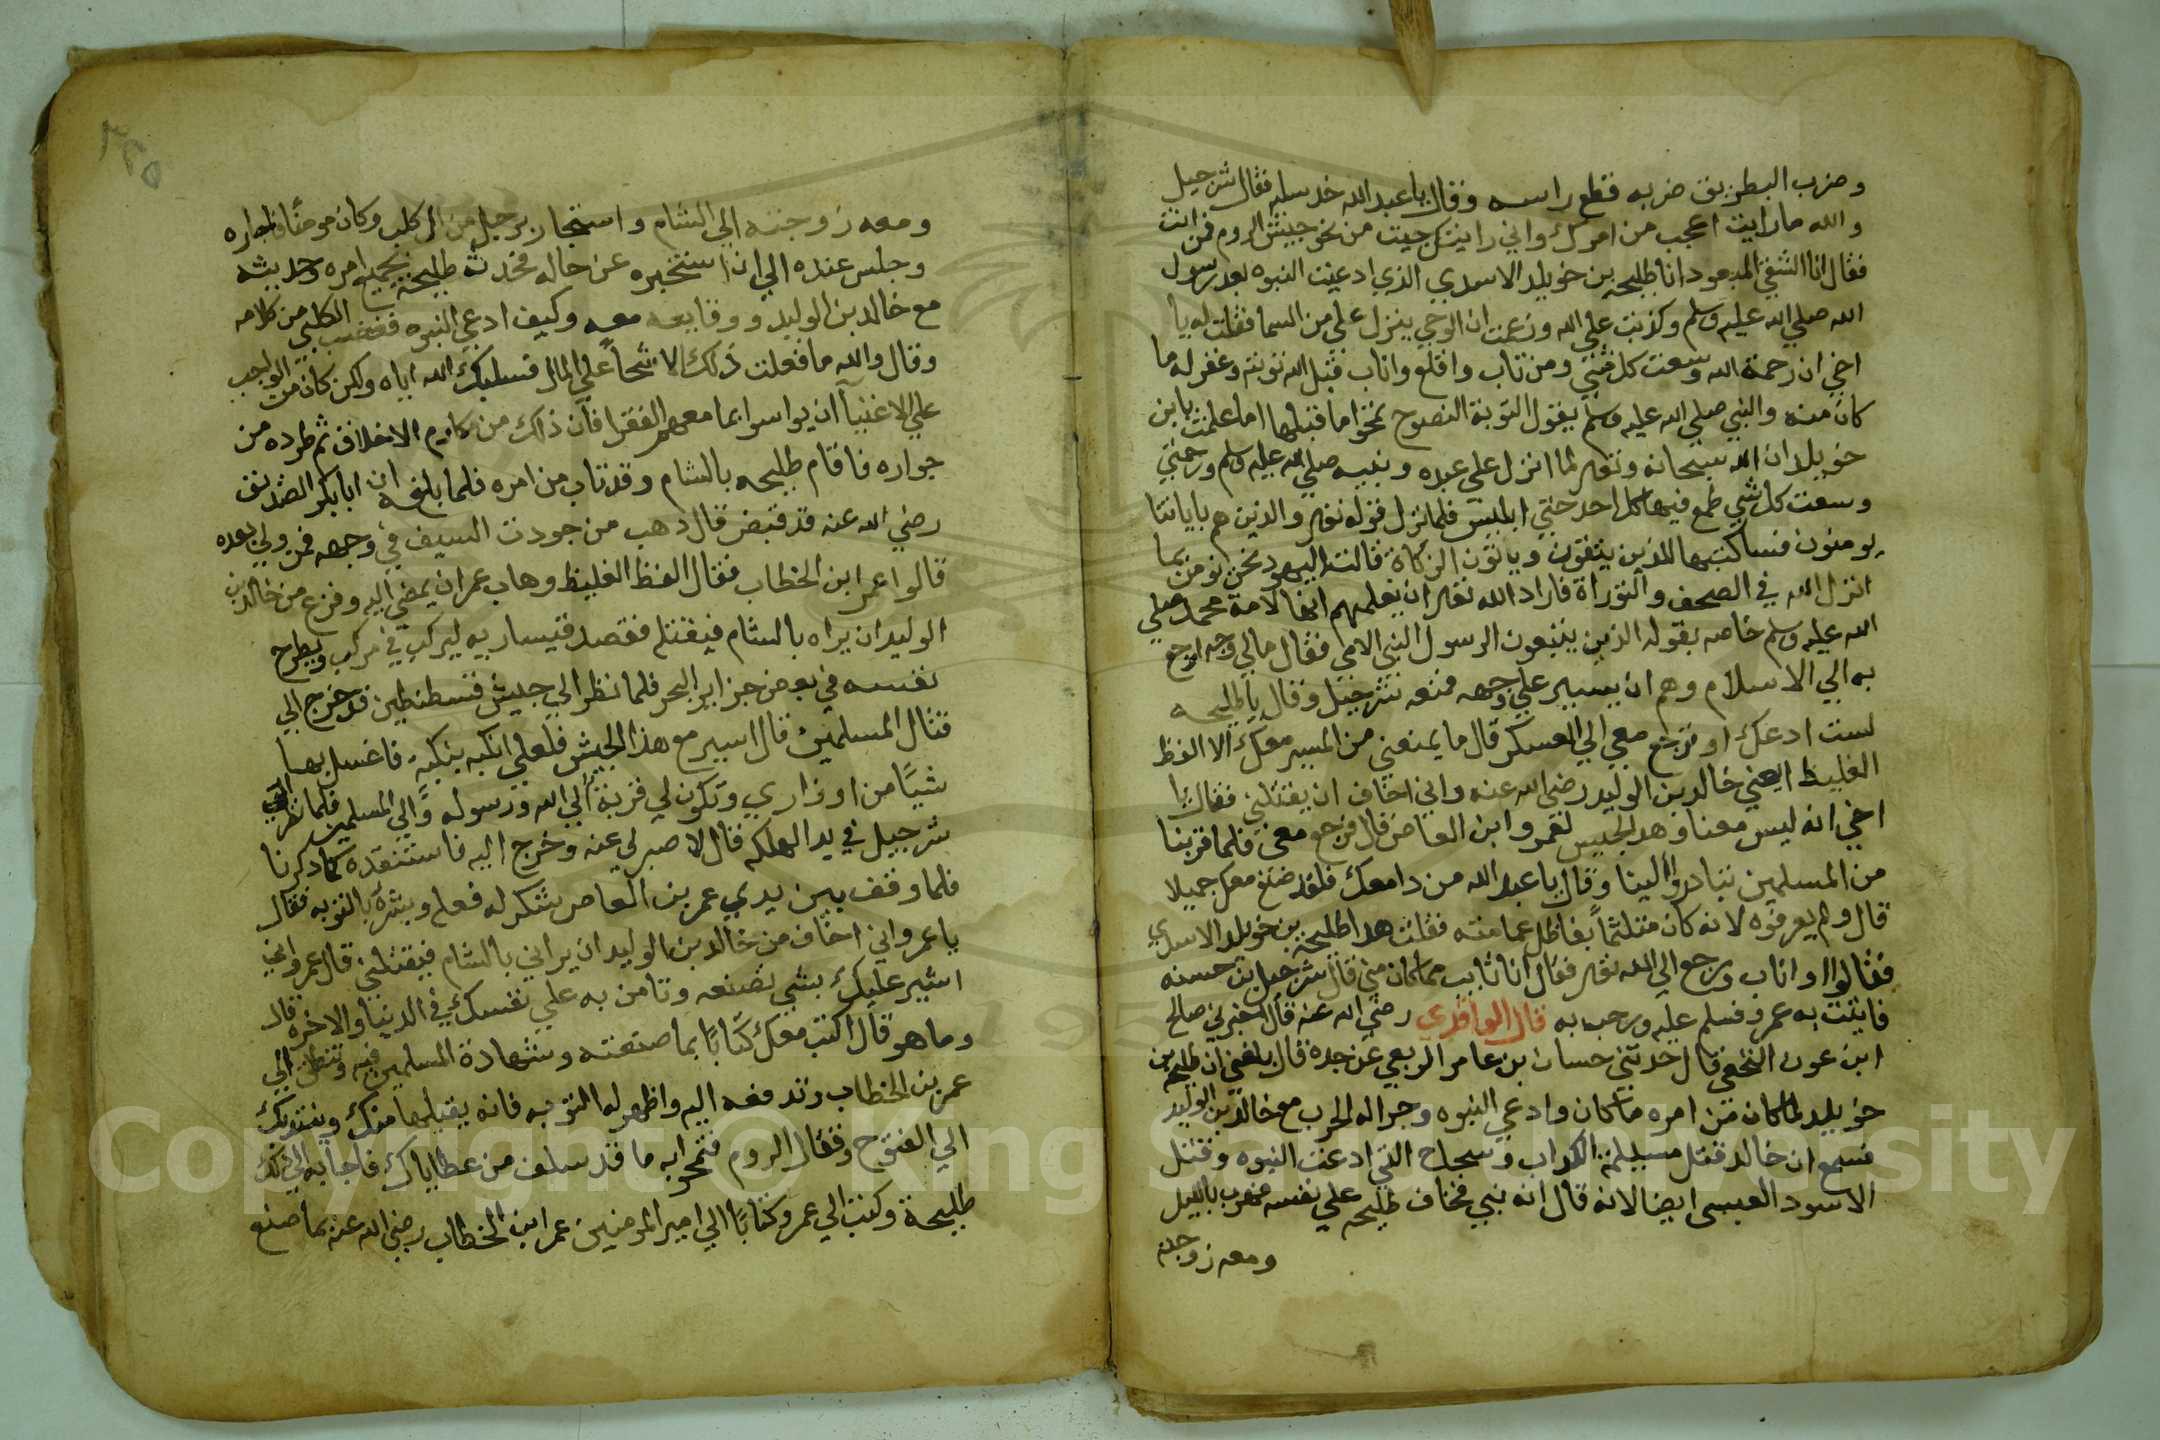 وضرب البطريق ضربه فقطع راسه وقال يا عبد الله خد سلبه فقال شرحبيل
والله ما رايت اعجب من امرك واني رايتك جيت من نحو جيش الروم فمن انت
فقال انا الشقي المبعود انا طليحه بن خويلد الاسدي الذي ادعيت النبوه بعد رسول
الله صلي الله عليه وسلم وكذبت علي الله وزعمت ان الوحي ينزل علي من السما فقلت له يا
اخي ان رحمة الله وسعت كل شي ومن تاب واقلع واناب قبل الله توبته وغفر له ما
كان منه والنبي صلي الله عليه وسلم يقول التوبة النصوح تمحوا ما قبلها اما علمت يا بن
خويلد ان الله سبحانه وتعالى لما انزل علي عبده ونبيه صلي الله عليه وسلم ورحمتي
وسعت كل شي طمع فيها كل احد حتي ابليس فلما نزل قوله تعالى والذين هم باياتنا
يومنون فساكتبها للذين يتقون وياتون الزكاة قالت اليهود نحن نومن بما
انزل الله في الصحف والتوراة فاراد الله تعالى ان يعلمهم انها لامة محمد صلي
الله عليه وسلم خاصه بقوله الذين يتبعون الرسول النبي الامي فقال مالي وجه ارجع
به الي الاسلام وهم ان يسير علي وجهه فمنعه شرحبيل وقال يا طليحه
لست ادعك او ترجع معي الي العسكر قال ما يمنعني من المسير معك الا الفظ
الغليظ اعني خالد بن الوليد رضي الله عنه واني اخاف ان يقتلني فقال يا
اخي انه ليس معنا وهدا الجيش لعمرو ابن العاص قال فرجع معي فلما قربنا
من المسلمين تبادروا الينا وقال يا عبد الله من دا معك فلقد صنع معك جميلا
قال ولم يعرفوه لانه كان متلثماً بفاظل عمامته فقلت هدا طليحة بن خويلد الاسدي
فقالوا او اناب ورجع الي الله تعالى فقال انا تايب مما كان مني قال شرحبيل بن حسنه
فاتيت به عمرو فسلم عليه ورحب به قال الواقدي رضي الله عنه قال اخبرني صالح
ابن عون النخعي قال حدثني حسان بن عامر الربعي عن جده قال بلغني ان طليحه بن
خويلد لما كان من امره ما كان وادعي النبوه وجرا له الحرب مع خالد بن الوليد
فسمع ان خالد قتل مسيلمة الكداب وسجاح التي ادعت النبوه وقتل
الاسود العبسى ايضا لانه قال انه نبي فخاف طليحه علي نفسه فهرب بالليل
ومعه زوجته
ومعه زوجته الي الشام واستجار برجل من ال كلب وكان مومنًا فاجاره
وجلس عنده الي ان استخبره عن حاله فحدثه طليحة بجميع امره وحديثه
مع خالد بن الوليد ووقايعه معه وكيف ادعي النبوه فغضب الكلبي من كلامه
وقال والله ما فعلت ذلك الا شحاً علي المال فسلبك الله اياه ولكن كان من الواجب
علي الاغنيآ ان يواسوا بما معهم الفقرا فان ذلك من مكارم الاخلاق ثم طرده من
جواره فاقام طليحه بالشام وقد تاب من امره فلما بلغه ان ابا بكر الصديق
رضي الله عنه قد قبض قال دهب من جودت السيف في وجهه فمن ولي بعده
قالوا عمر ابن الخطاب فقال الفظ الغليظ وهاب عمر ان يمضي اليه وفزع من خالد بن
الوليد ان يراه بالشام فيقتله فقصد قيساريه ليركب في مركب ويطرح
نفسه في بعض جزاير البحر فلما نظر الي جيش قسطنطين قد خرج الي
قتال المسلمين قال اسير مع هذا الجيش فلعلي انكبه بنكبة فاغسل بها
شيًا من اوزاري وتكون لي قربة الي الله ورسوله والي المسلمين فلما نظر الي
شرحبيل في يد الهلكه قال لا صبر لي عنه وخرج اليه فاستنقده كما دكرنا
فلما وقف بين يدي عمر بن العاص شكر له فعله وبشره بالتوبه فقال
يا عمر واني اخاف من خالد بن الوليد ان يراني بالشام فيقتلني قال عمرو اني
اشير عليك بشي تصنعه وتامن به علي نفسك في الدنيا والاخره قال
وما هو قال اكتب معك كتابًا بما صنعته وشهادة المسلمين فيه وتنطلق الي
عمر بن الخطاب وتدفعه اليه واظهر له التوبه فانه يقبلها منك ويندبك
الي الفتوح وقتال الروم فتمحوا به ما قد سلف من عطاياك فاجابه الي ذلك
طليحة وكتب الي عمرو كتابًا الي امير المومنين عمر ابن الخطاب رضي الله عنه بما صنع
Copyright © King Saud University
1957